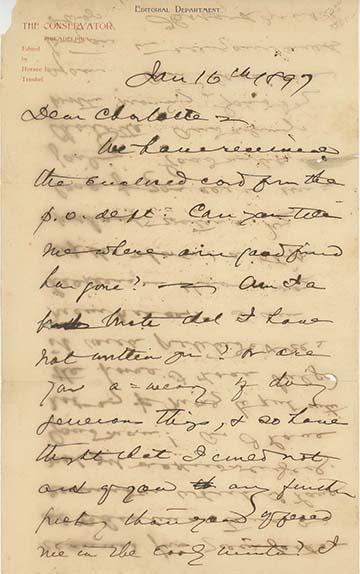 EDITORIAL DEPARTMENT
THE CONSERVATOR
PHILADELPHIA
Edited
by
Horace L.
Traubel
Jan 16th 1897
Dear Charlotte –
We have received
the enclosed card from the
p. o. dept. Can you tell
me where our good friend
has gone? — Am I a
brute that I have
not written you? Or are
you a-weary of doing
generous things, & so have
thought that I could not
ask of you any further
than you offered
me in the early winter? I